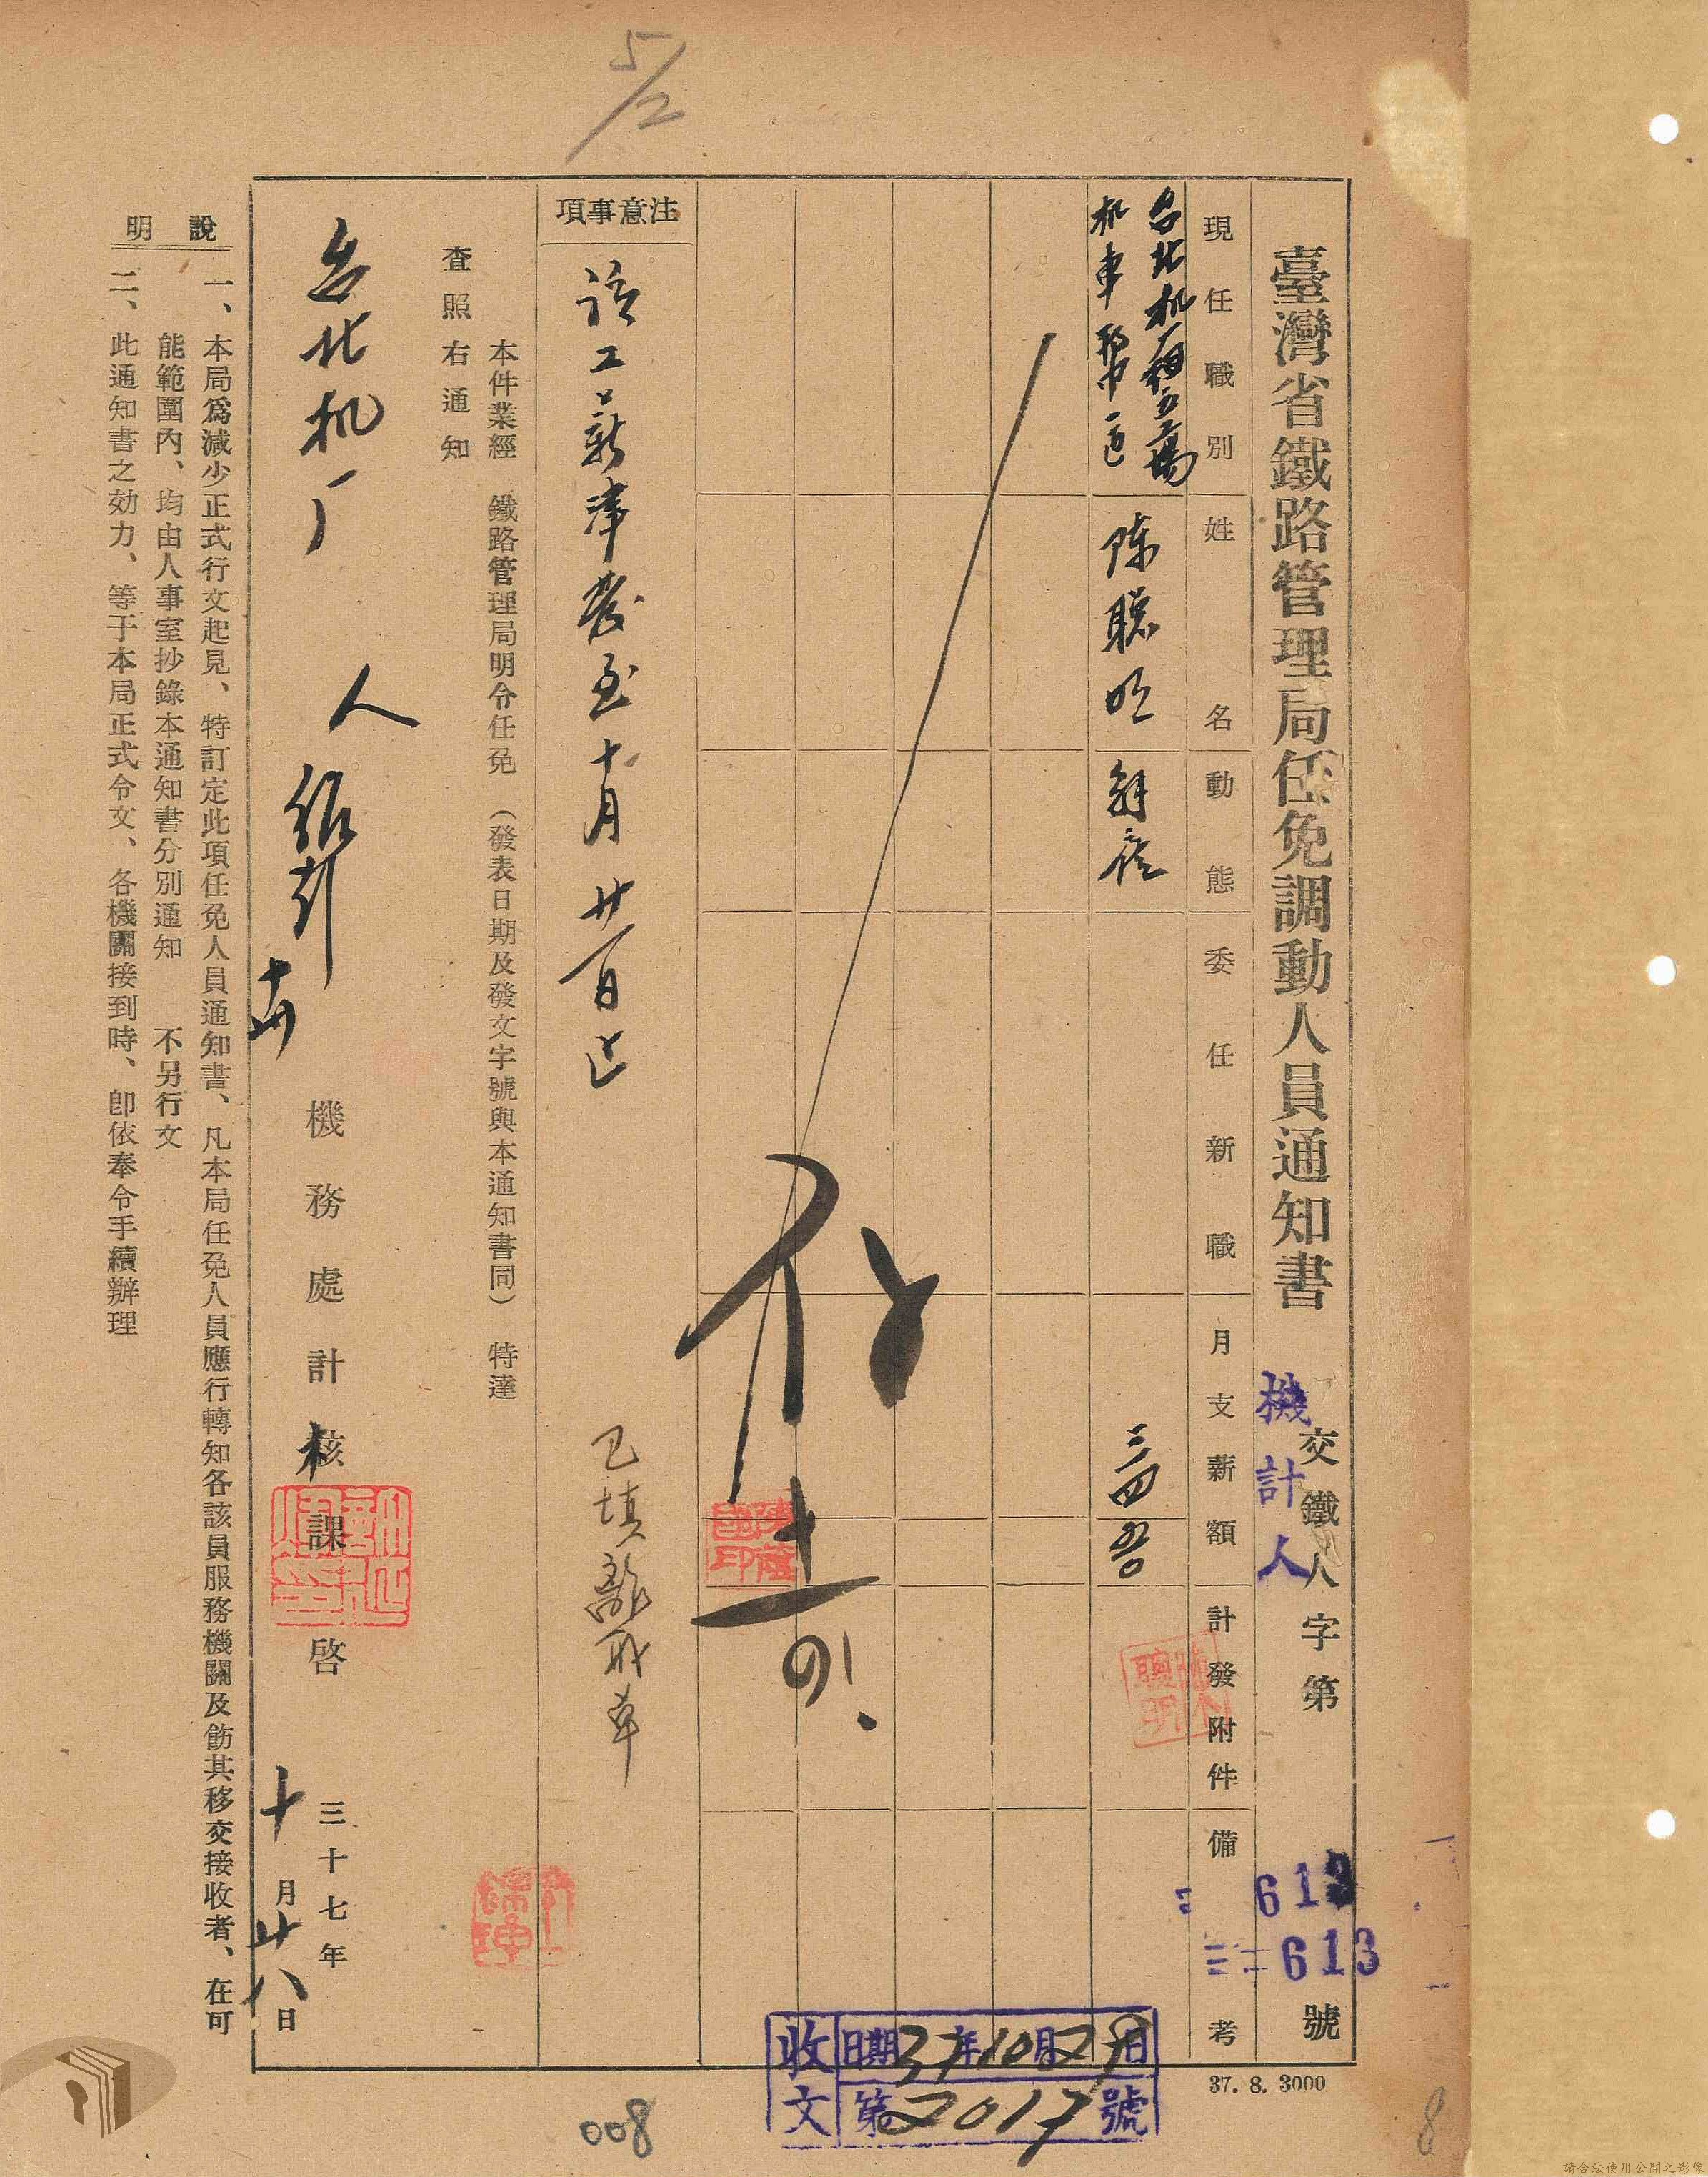 5/2
臺灣省鐵路管理局任免調動人員通知書
交鐵人字第
號
機計人
613
613
現任職別
姓名
動態
委任新職
月支薪額
計發附件
備考
台北机
机車
陳聰明
解僱
三四
注意事項
該工薪津發至十月廿日止
已填離職單
本件業經 鐵路管理局明令任免 (發表日期及發文字號與本通知書同) 特達
查照右通知
台北机厂
人
機務處計核課啓
三十七年
十月廿八日
說明
一、本局為減少正式行文起見、特訂定此項任免人員通知書、凡本局任免人員應行轉知各該員服務機關及飭其移交接收者、在可
能範圍內、均由人事室抄錄本通知書分別通知 不另行文
二、此通知書之効力、等于本局正式令文、各機關接到時、卽依奉令手續辦理
收文
日期37年10月29日
第2017號
37. 8. 3000
008
8
請合法使用公開之影像